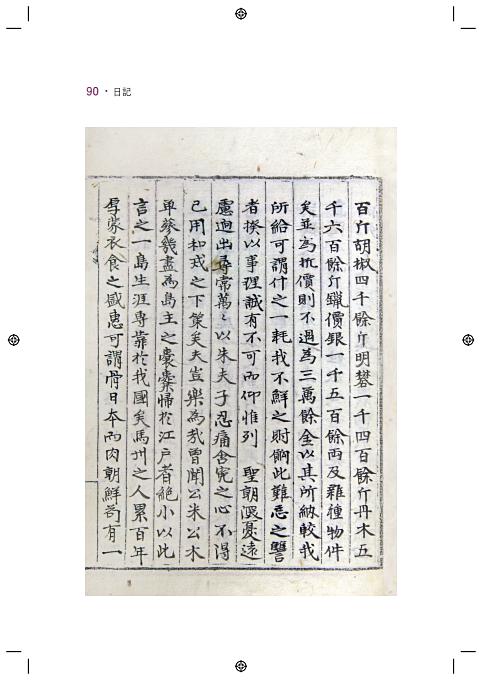 90 · 日記
百斤胡椒四千餘斤明礬一千四百餘斤丹木五
千六百餘斤鑞價銀一千五百餘両及雜種物件
矣並為折價則不過為三萬餘金以其所納較我
所給可謂什之一耗我不鮮之財餉此難忘之讐
者揆以事理誠有不可而仰惟列 聖朝深憂遠
慮逈出尋常萬〻以朱夫子忍痛含寃之心不得
已用和戎之下策矣夫豈樂為哉曾聞公米公木
单蔘幾盡為島主之囊橐歸於江戶者絶小以此
言之一島生涯専靠於我國矣馬州之人累百年
厚蒙衣食之盛惠可謂骨日本而肉朝鮮苟有一